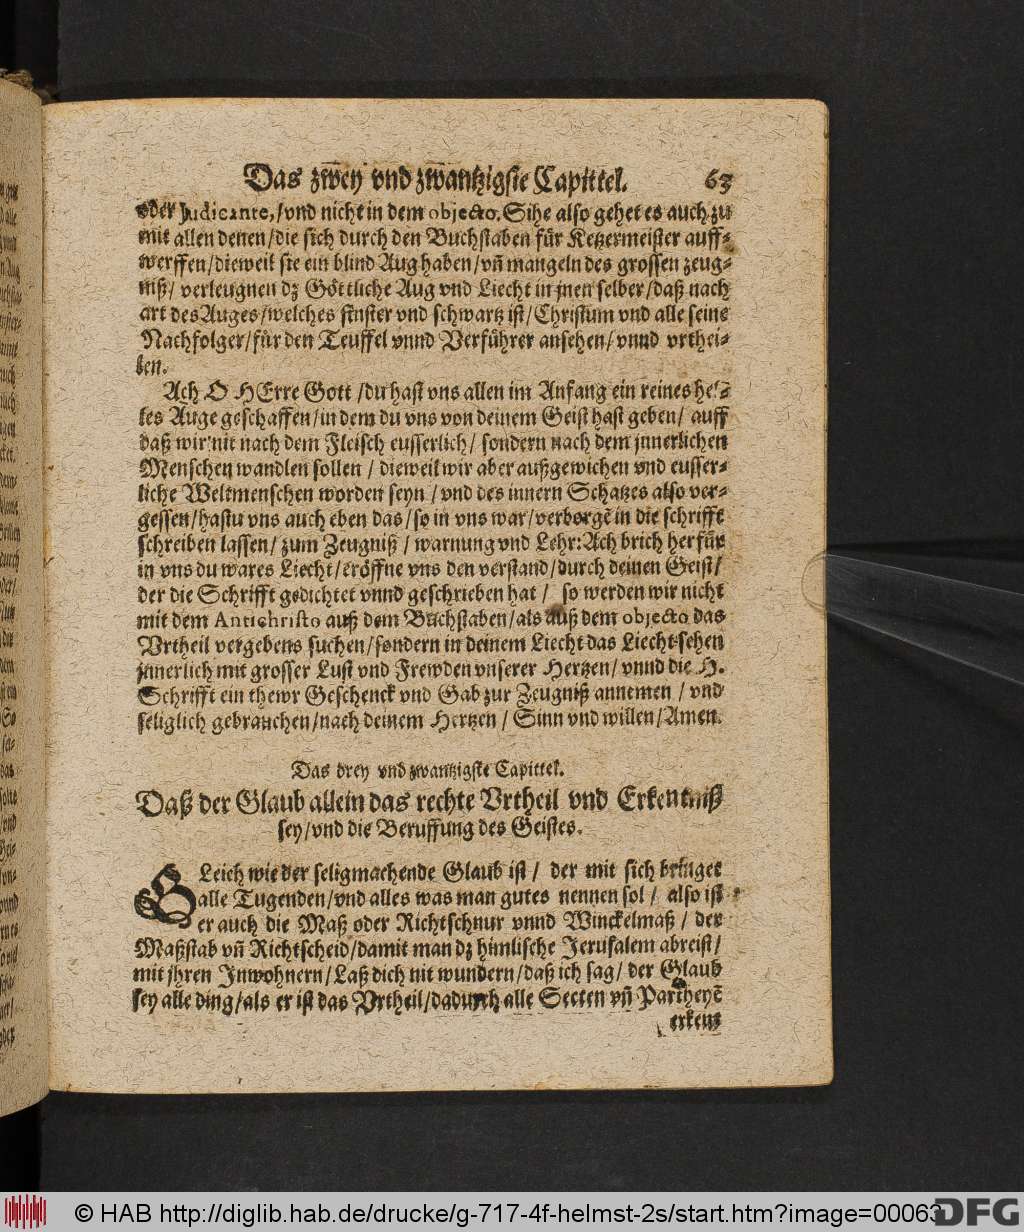 Das zwey vnd zwantzigste Capittel. 63
oder Judicante,/vnd nicht in dem objecto. Sihe also gehet es auch zu
mit allen denen/die sich durch den Buchstaben für Ketzermeister auff-
werffen/dieweil sie ein blind Aug haben/vn̄ mangeln des grossen zeug-
niß/ verleugnen dz Göttliche Aug vnd Liecht in jnen selber/daß nach
art des Auges/welches finster vnd schwartz ist/Christum vnd alle seine
Nachfolger/für den Teuffel vnnd Verführer ansehen/vnnd vrthei-
len.
Ach O HErre Gott /du hast vns allen im Anfang ein reines hel-
les Auge geschaffen/in dem du vns von deinem Geist hast geben/ auff
daß wir nit nach dem Fleisch eusserlich/ sondern nach dem jnnerlichen
Menschen wandlen sollen / dieweil wir aber außgewichen vnd eusser-
liche Weltmenschen worden seyn /vnd des innern Schatzes also ver-
gessen/hastu vns auch eben das/so in vns war/verborgē in die schrifft
schreiben lassen/ zum Zeugniß / warnung vnd Lehr: Ach brich herfür
in vns du wares Liecht/eröffne vns den verstand/durch deinen Geist/
der die Schrifft gedichtet vnnd geschrieben hat / so werden wir nicht
mit dem Antichristo auß dem Buchstaben/als auß dem objecto das
Vrtheil vergebens suchen/sondern in deinem Liecht das Liecht sehen
jnnerlich mit grosser Lust vnd Frewden vnserer Hertzen/vnnd die H.
Schrifft ein thewr Geschenck vnd Gab zur Zeugniß annemen /vnd
seliglich gebrauchen/nach deinem Hertzen / Sinn vnd willen/Amen.
Das drey vnd zwantzigste Capittel.
Daß der Glaub allein das rechte Vrtheil vnd Erkentniß
sey/vnd die Beruffung des Geistes.
GLeich wie der seligmachende Glaub ist / der mit sich bringet
alle Tugenden/vnd alles was man gutes nennen sol/ also ist
er auch die Maß oder Richtschnur vnnd Winckelmaß / der
Maßstab vn̄ Richtscheid/damit man dz himlische Jerusalem abreist/
mit jhren Inwohnern/Laß dich nit wundern/daß ich sag/ der Glaub
sey alle ding/als er ist das Vrtheil/dadurch alle Secten vn̄ Partheyē
erkent
© HAB http://diglib.hab.de/drucke/g-717-4f-helmst-2s/start.htm?image=00063
DFG